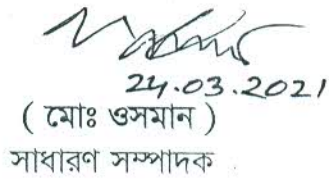 24.03.2021
( মোঃ ওসমান )
সাধারণ সম্পাদক